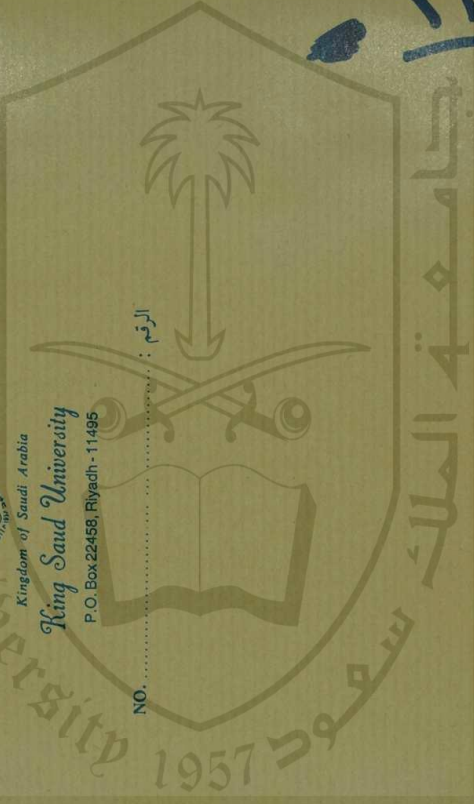 Kingdom of Saudi Arabia
King Saud University
P.O. Box 22458, Riyadh - 11495
NO. ................................ : الرقم
جامعة الملك سعود
ersity 1957